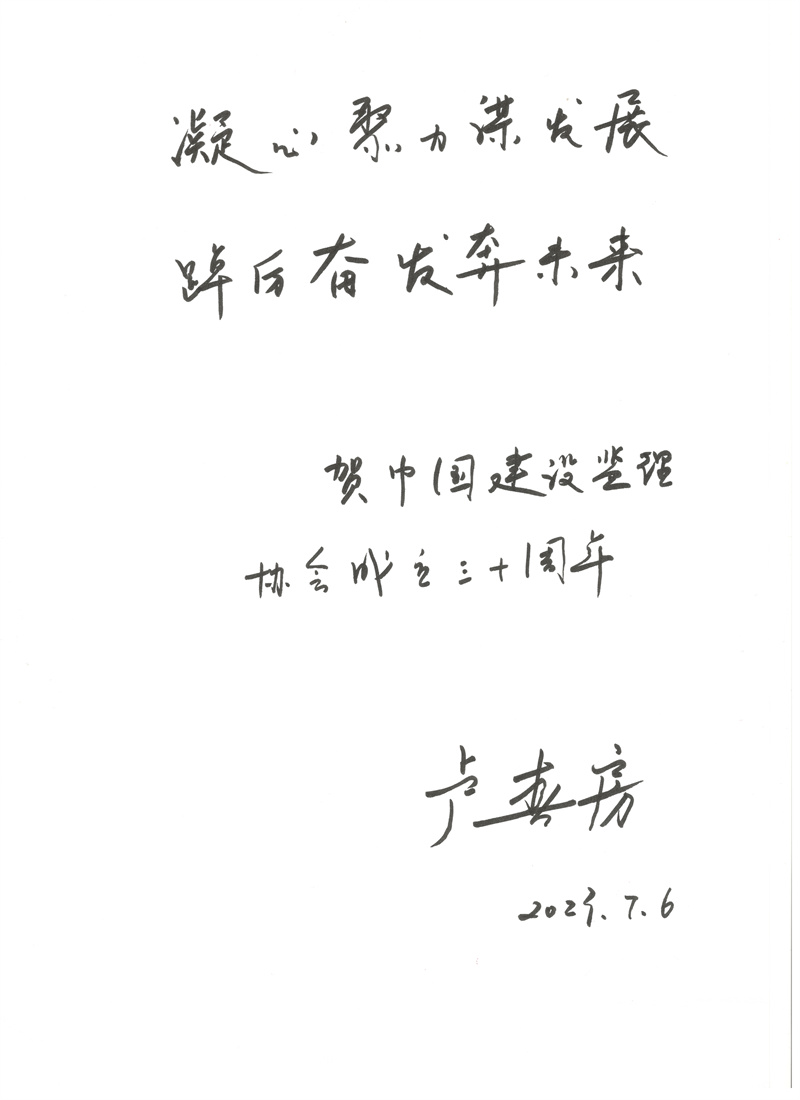 凝心聚力谋发展
踔厉奋发奔未来
贺中国建设监理
协会成立三十周年
卢春房
2023.7.6